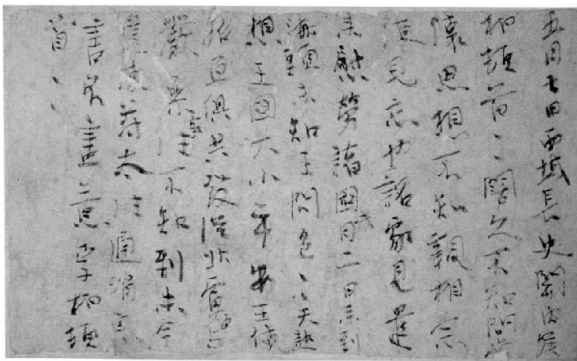 五月七日西域長史關內侯
柏頓首〻〻闊久不知問常
懷思想不知親相念
便見忘也詔家見遣
來慰勞諸國此月二日來到
海頭未知王問邑〻天熱
想王國大小平安王使
招亘俱共發從北虜中與
嚴參事往不知到未今
遣使苻太往通消息
書不盡意李柏頓
首〻〻